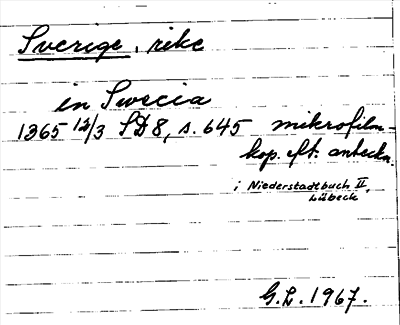 Sverige, rike
in Swecia
1365 12/3 SD 8, s. 645 mikrofilm-
kop. eft. anteckn.
i Niederstadtbuch II,
Lübeck
G.L. 1967.